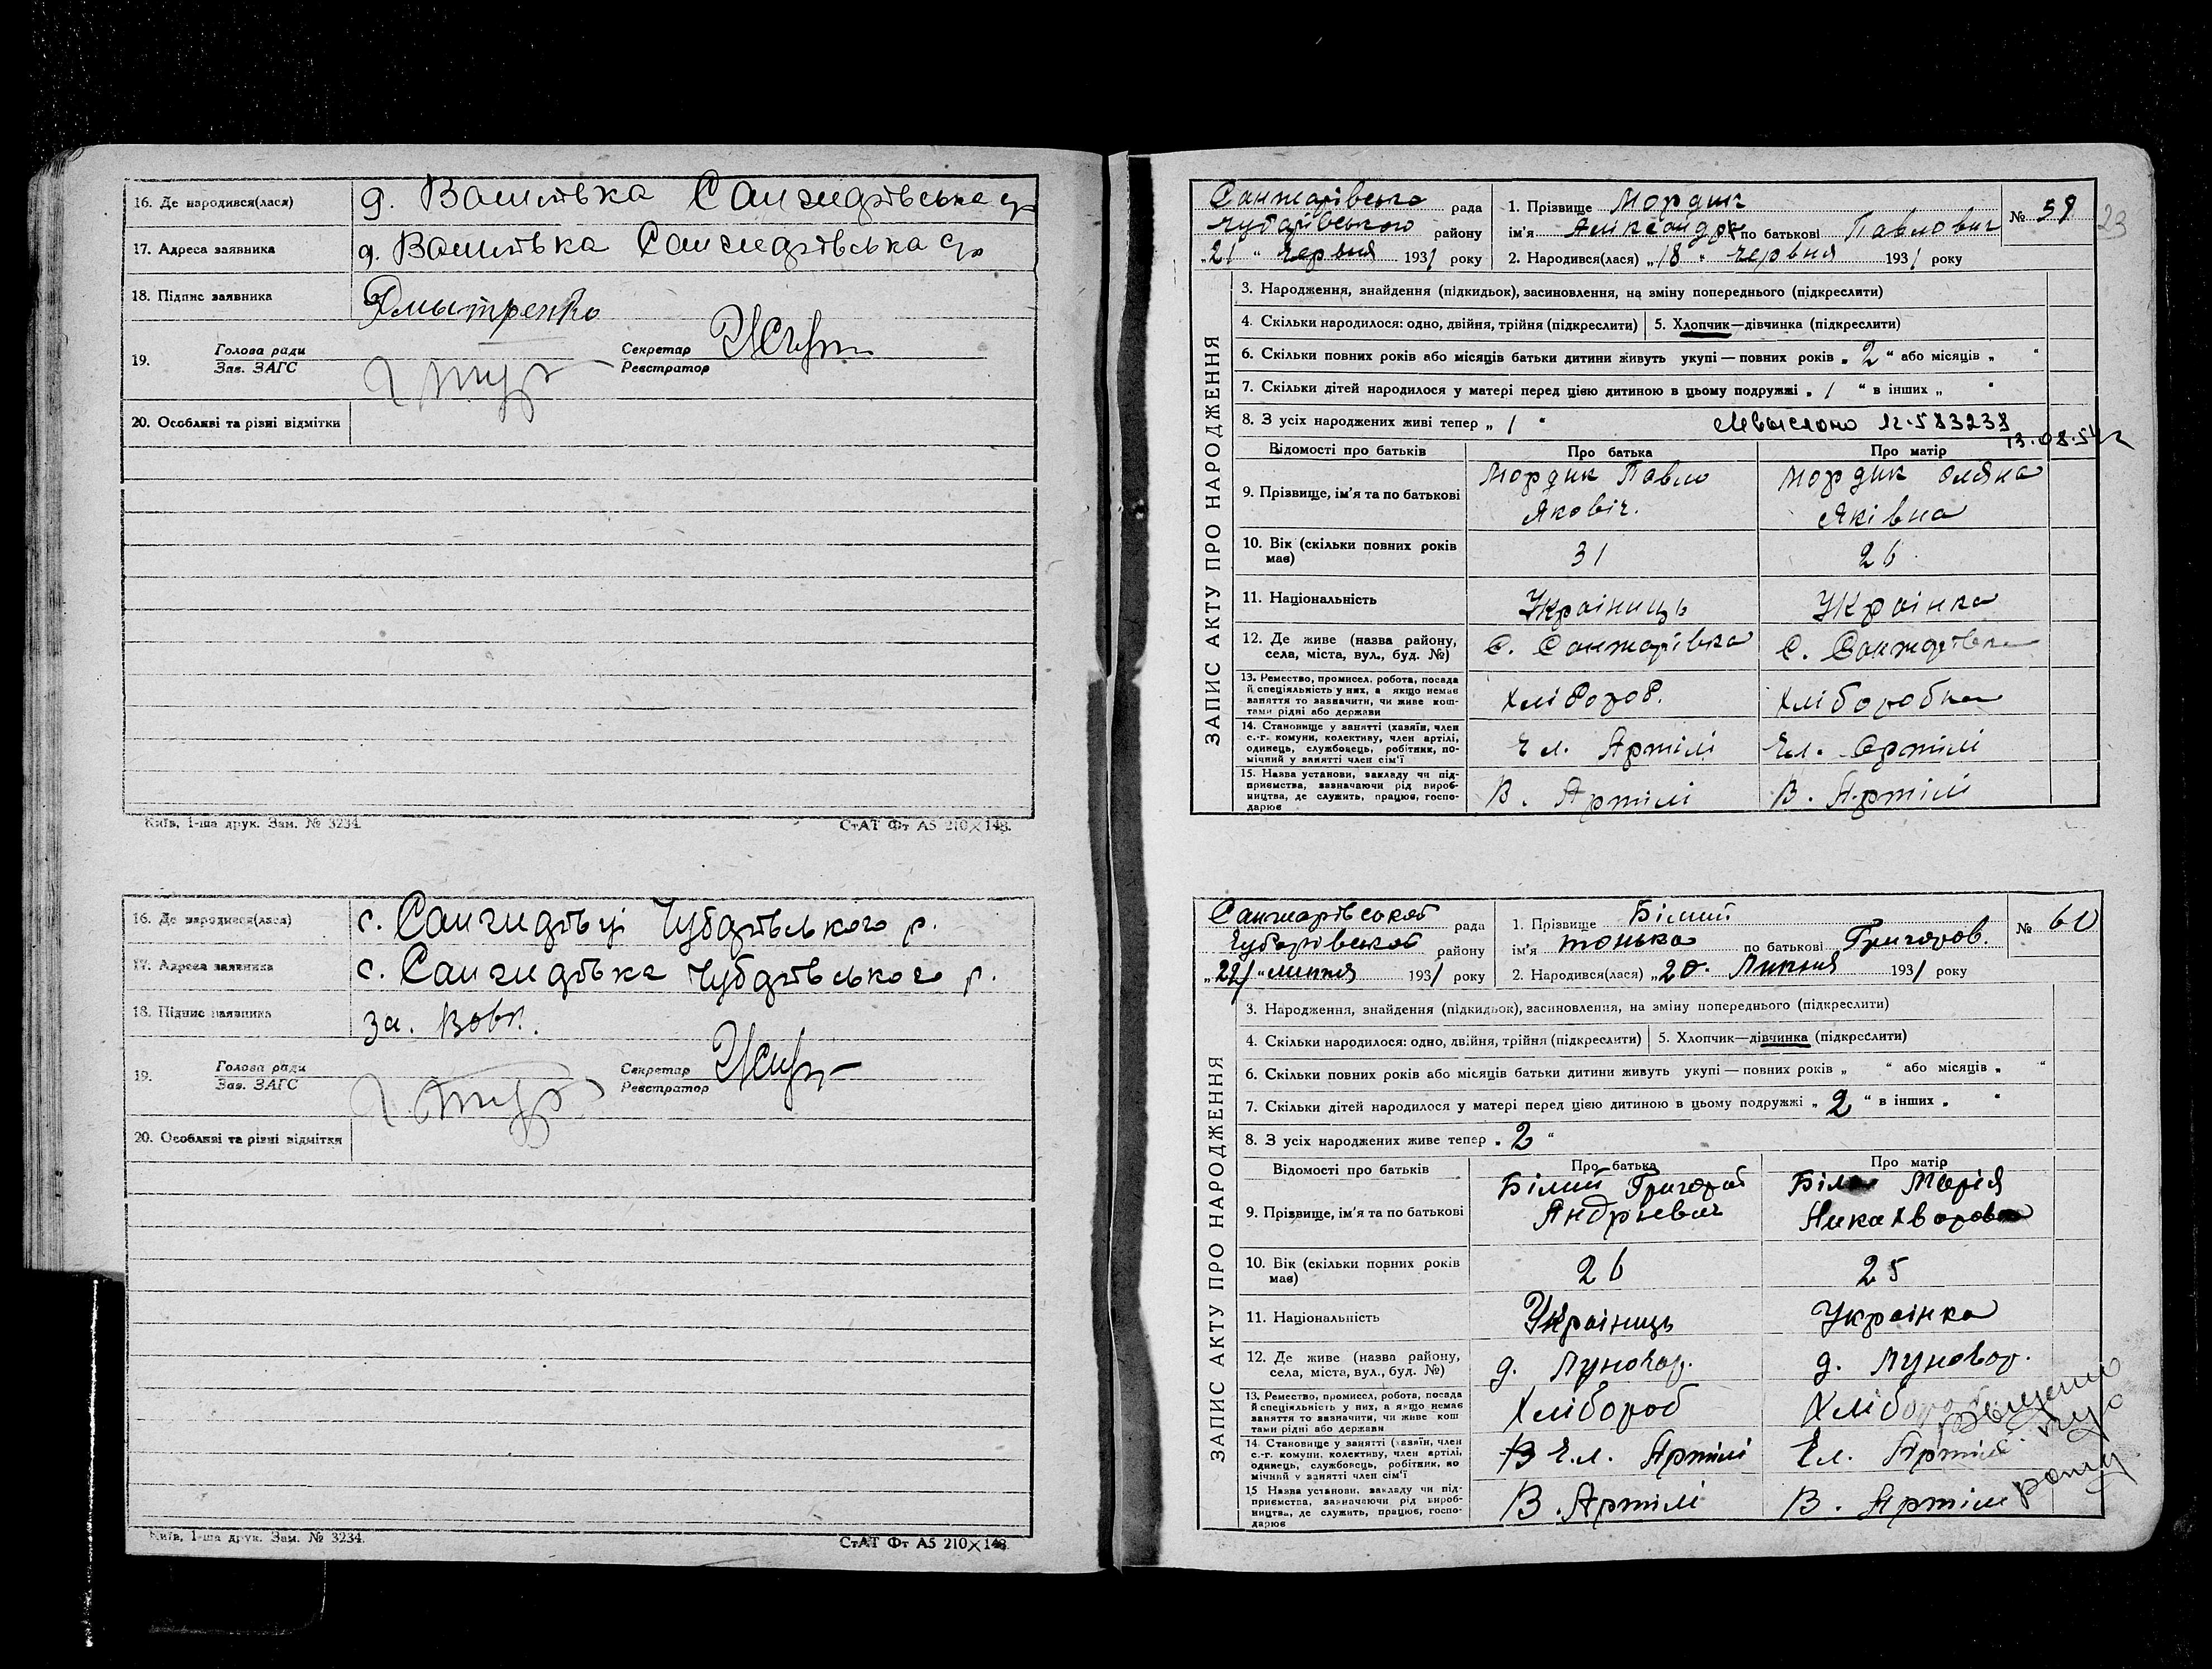 16. Де народився(лася)
17. Адреса заявника
18. Підпис заявника
Дмытренко
19. Голова ради
Зав. ЗАГС
Секретар
Реєстратор
20. Особливі та різні відмітки
Київ, 1-ша друк. Зам. № 3234.
СтАТ Фт А5 210×148.
16. Де народився(лася) с.
17. Адреса заявника с.
18. Підпис заявника За.
19. Голова ради
Зав. ЗАГС
Секретар
Реєстратор
20. Особливі та різні відмітки
Київ, 1-ша друк. Зам. № 3234.
СтАТ Фт А5 210×148.
23
ЗАПИС АКТУ ПРО НАРОДЖЕННЯ
Санжарівська рада
Чубарівського району
„21" червня 1931 року
1. Прізвище Мордик
ім'я Аліксандр по батькові Павлович
№ 59
2. Народився(лася) „18" червня 1931 року
3. Народження, знайдення (підкидьок), засиновлення, на зміну попереднього (підкреслити)
4. Скільки народилося: одно, двійня, трійня (підкреслити) 5. Хлопчик—дівчинка (підкреслити)
6. Скільки повних років або місяців батьки дитини живуть укупі — повних років „2" або місяців „ "
7. Скільки дітей народилося у матері перед цією дитиною в цьому подружжі „1" в інших „ "
8. З усіх народжених живі тепер „1" №583238
13.08.54
Відомості про батьків Про батька Про матір
9. Прізвище, ім'я та по батькові Мордик Павло Яковіч. Мордик Оляна Яківна
10. Вік (скільки повних років має) 31 26
11. Національність Україниць Українка
12. Де живе (назва району, села, міста, вул., буд. №) С. Санжарівка С. Санжарівка
13. Ремество, промисел, робота, посада й спеціяльність у них, а якщо немає заняття то зазначити, чи живе коштами рідні або держави Хлібороб. Хліборобка
14. Становище у занятті (хазяїн, член с.-г. комуни, колективу, член артілі, одинець, службовець, робітник, помічний у занятті член сім'ї Чл. Артілі Чл. Артілі
15. Назва установи, закладу чи підприємства, зазначаючи рід виробництва, де служить, працює, господарює В. Артілі В. Артілі
ЗАПИС АКТУ ПРО НАРОДЖЕННЯ
Санжарівської рада
Чубарівської району
„22" липня 1931 року
1. Прізвище Білий
ім'я Тонька по батькові Григоров.
№ 60
2. Народився(лася) „20. Липня 1931 року
3. Народження, знайдення (підкидьок), засиновлення, на зміну попереднього (підкреслити)
4. Скільки народилося: одно, двійня, трійня (підкреслити) 5. Хлопчик—дівчинка (підкреслити)
6. Скільки повних років або місяців батьки дитини живуть укупі — повних років „ " або місяців „ "
7. Скільки дітей народилося у матері перед цією дитиною в цьому подружжі „2" в інших „ "
8. З усіх народжених живе тепер „2"
Відомості про батьків Про батька Про матір
9. Прізвище, ім'я та по батькові Білий Григорій Андрієвич Марія
10. Вік (скільки повних років має) 26 25
11. Національність Україниць Українка
12. Де живе (назва району, села, міста, вул., буд. №)
13. Ремество, промисел, робота, посада й спеціяльність у них, а якщо немає заняття то зазначити, чи живе кош тами рідні або держави Хлібороб
14. Становище у занятті (хазяїн, член с.-г. комуни, колективу, член артілі, одинець, службовець, робітник, помічний у занятті член сім'ї Чл. Артілі Чл. Артілі
15 Назва установи, закладу чи підприємства, зазначаючи рід виробництва, де служить, працює, господарює В. Артілі В. Артілі